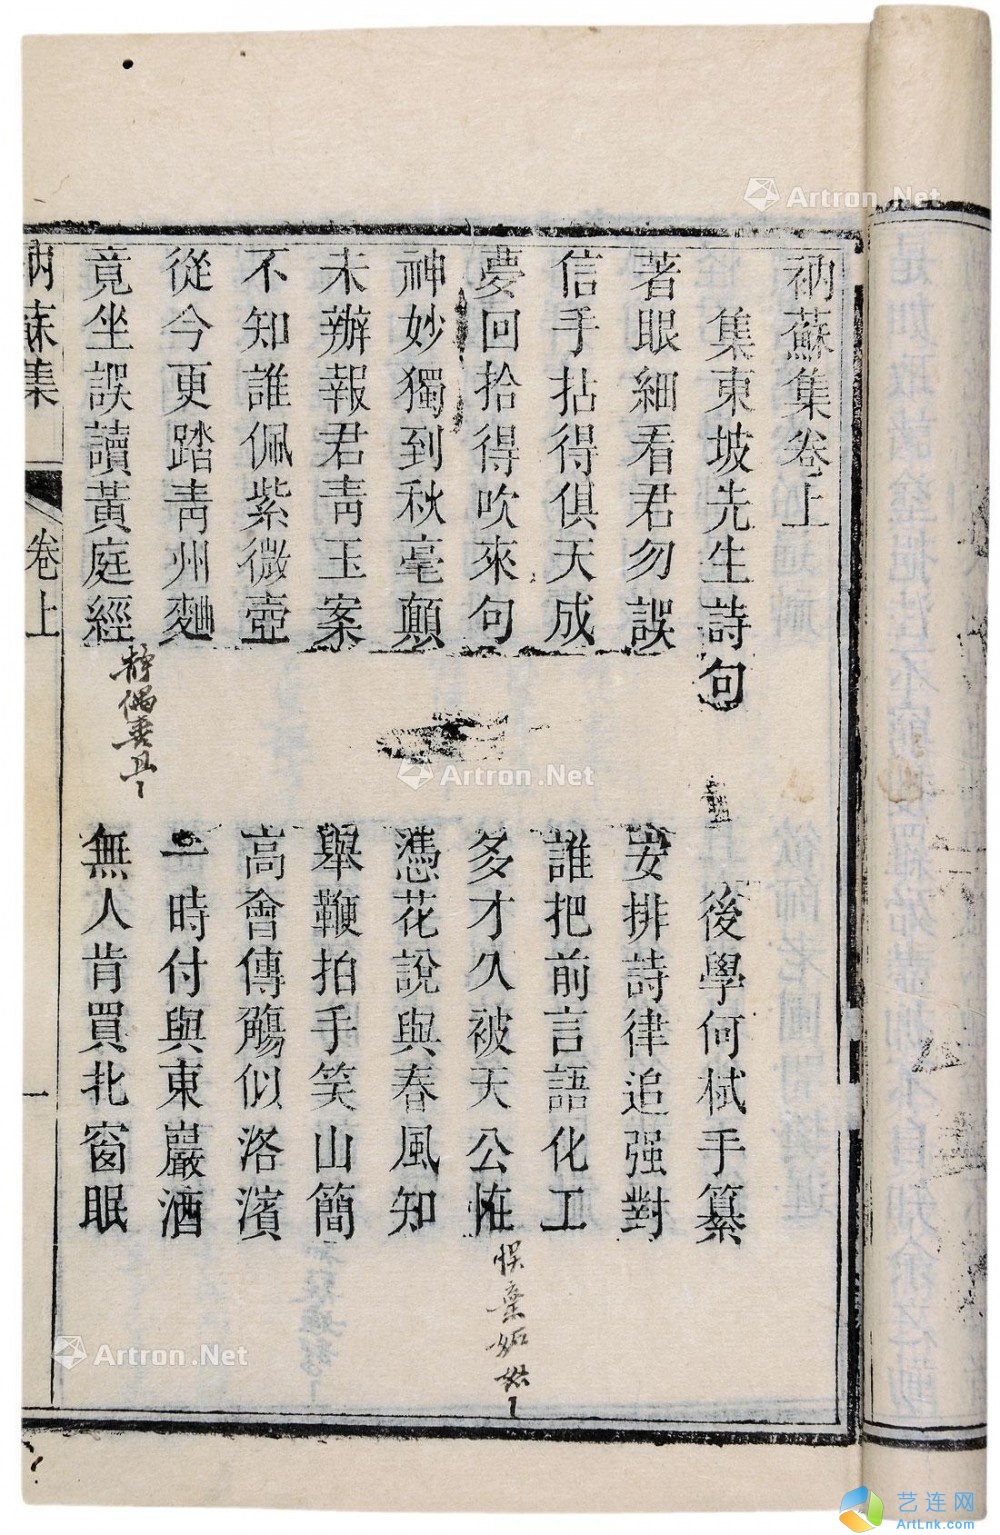 衲蘇集卷上
集東坡先生詩句
後學何栻手纂
著眼細看君勿誤
安排詩律追强對
信手拈得俱天成
誰把前言語化工
夢回拾得吹來句
多才久被天公怪
神妙獨到秋毫顛
憑花說與春風知
未辦報君青玉案
舉鞭拍手笑山簡
不知誰佩紫微壺
高會傳觴似洛濱
從今更踏青州麯
一時付與東巖酒
竟坐誤讀黃庭經
無人肯買北窗眠
衲蘇集
卷上
一
Artron.Net
Artron.Net
Artron.Net
艺连网
ArtLnk.com